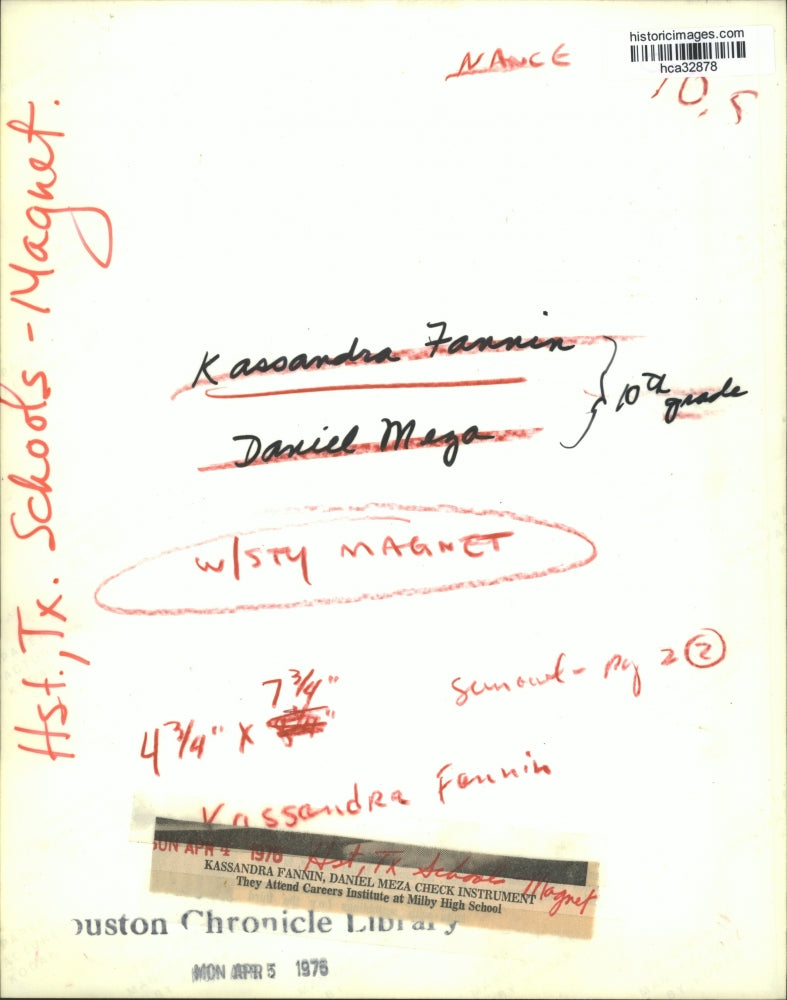 historicimages.com
hca32878
NANCE
10.5
Hst., Tx. Schools - Magnet.
Kassandra Fannin
10th grade
Daniel Meza
W/STY MAGNET
7 3/4"
4 3/4" x
pg 2 2
Kassandra Fannin
SUN APR 4 1976
Hst, TX Schools Magnet
KASSANDRA FANNIN, DANIEL MEZA CHECK INSTRUMENT
They Attend Careers Institute at Milby High School
ouston Chronicle Library
MON APR 5 1976